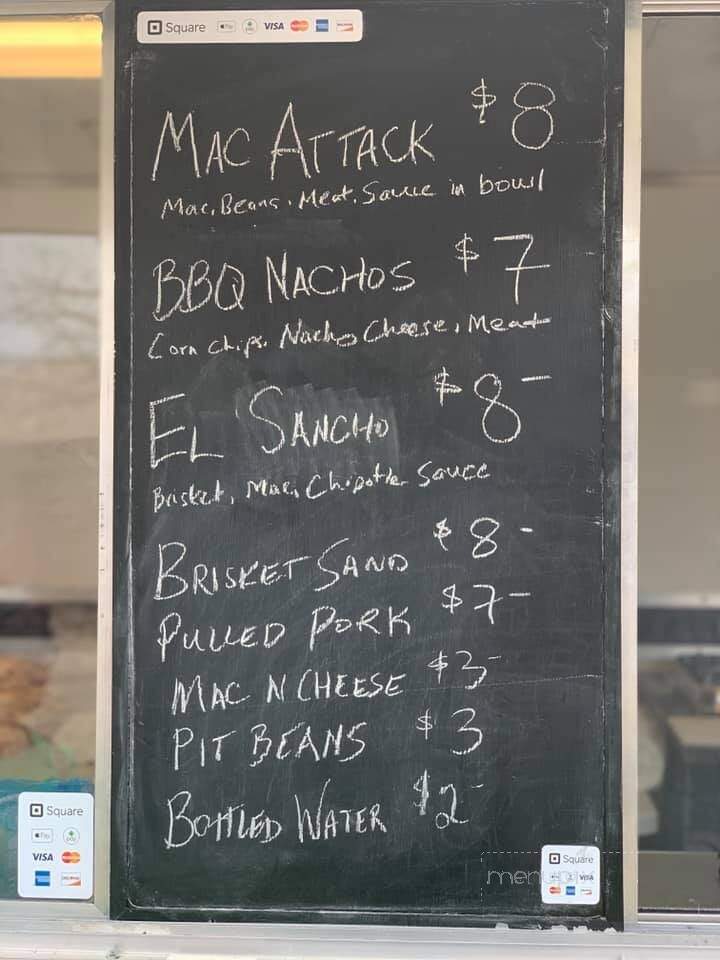 Square Pay VISA
MAC ATTACK $8
Mac, Beans, Meat, Sauce in bowl
BBQ NACHOS $7
Corn chips, Nacho Cheese, Meat
EL SANCHO $8-
Brisket, Mac, Chipotle Sauce
BRISKET SAND $8-
PULLED PORK $7-
MAC N CHEESE $3-
PIT BEANS $3
BOTTLED WATER $2-
Square
Pay
VISA
Square
VISA
menupix